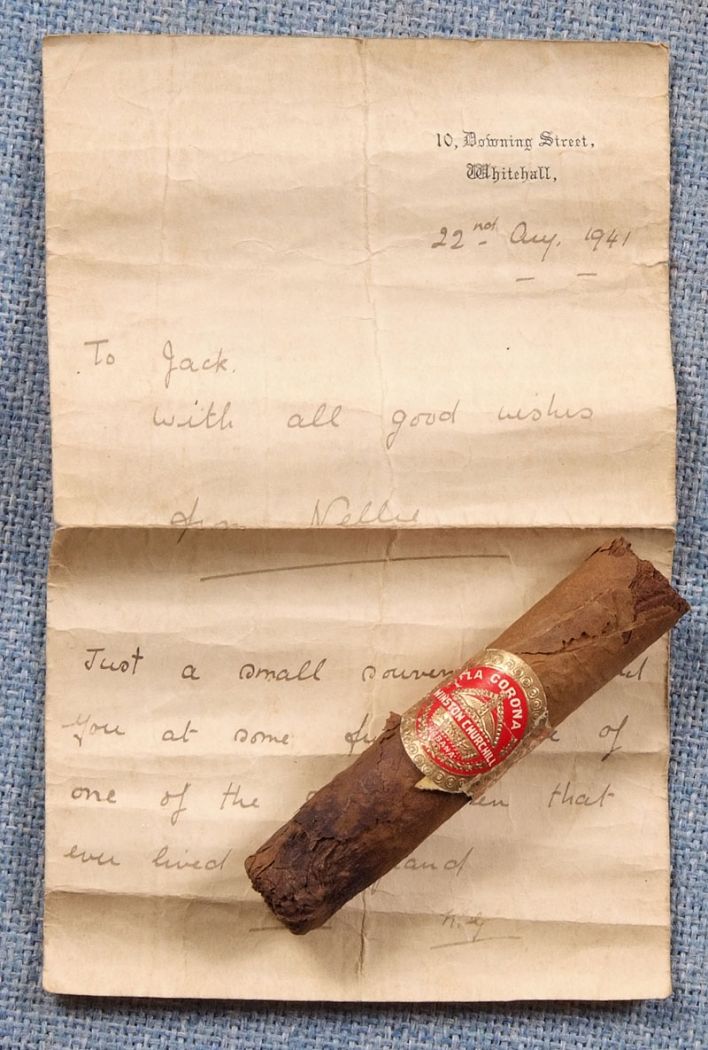 10, Downing Street,
Whitehall,
22nd Aug. 1941
To Jack.
With all good wishes
from Nellie
Just a small
you at some of
one of the that
ever lived
N.G
LA CORONA
WINSTON CHURCHILL